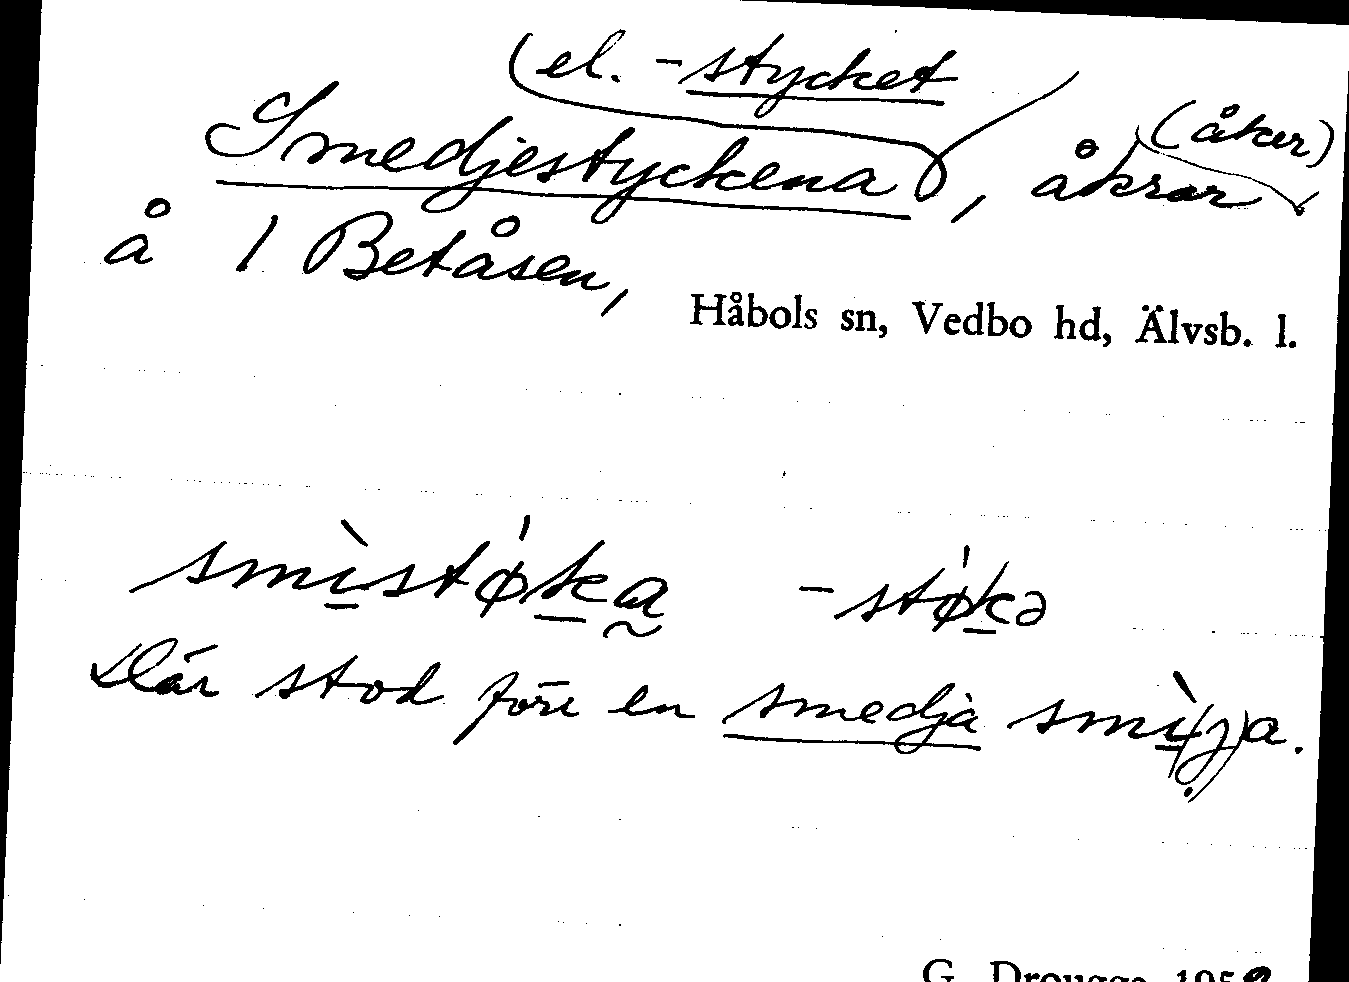 (el. -stycket
Smedjestyckena), åkrar (åker)
å 1 Betåsen,
Håbols sn, Vedbo hd, Älvsb. l.
smìstǿka -stǿkə
Där stod förr en smedja smì(j)a.
G. Drougge 195